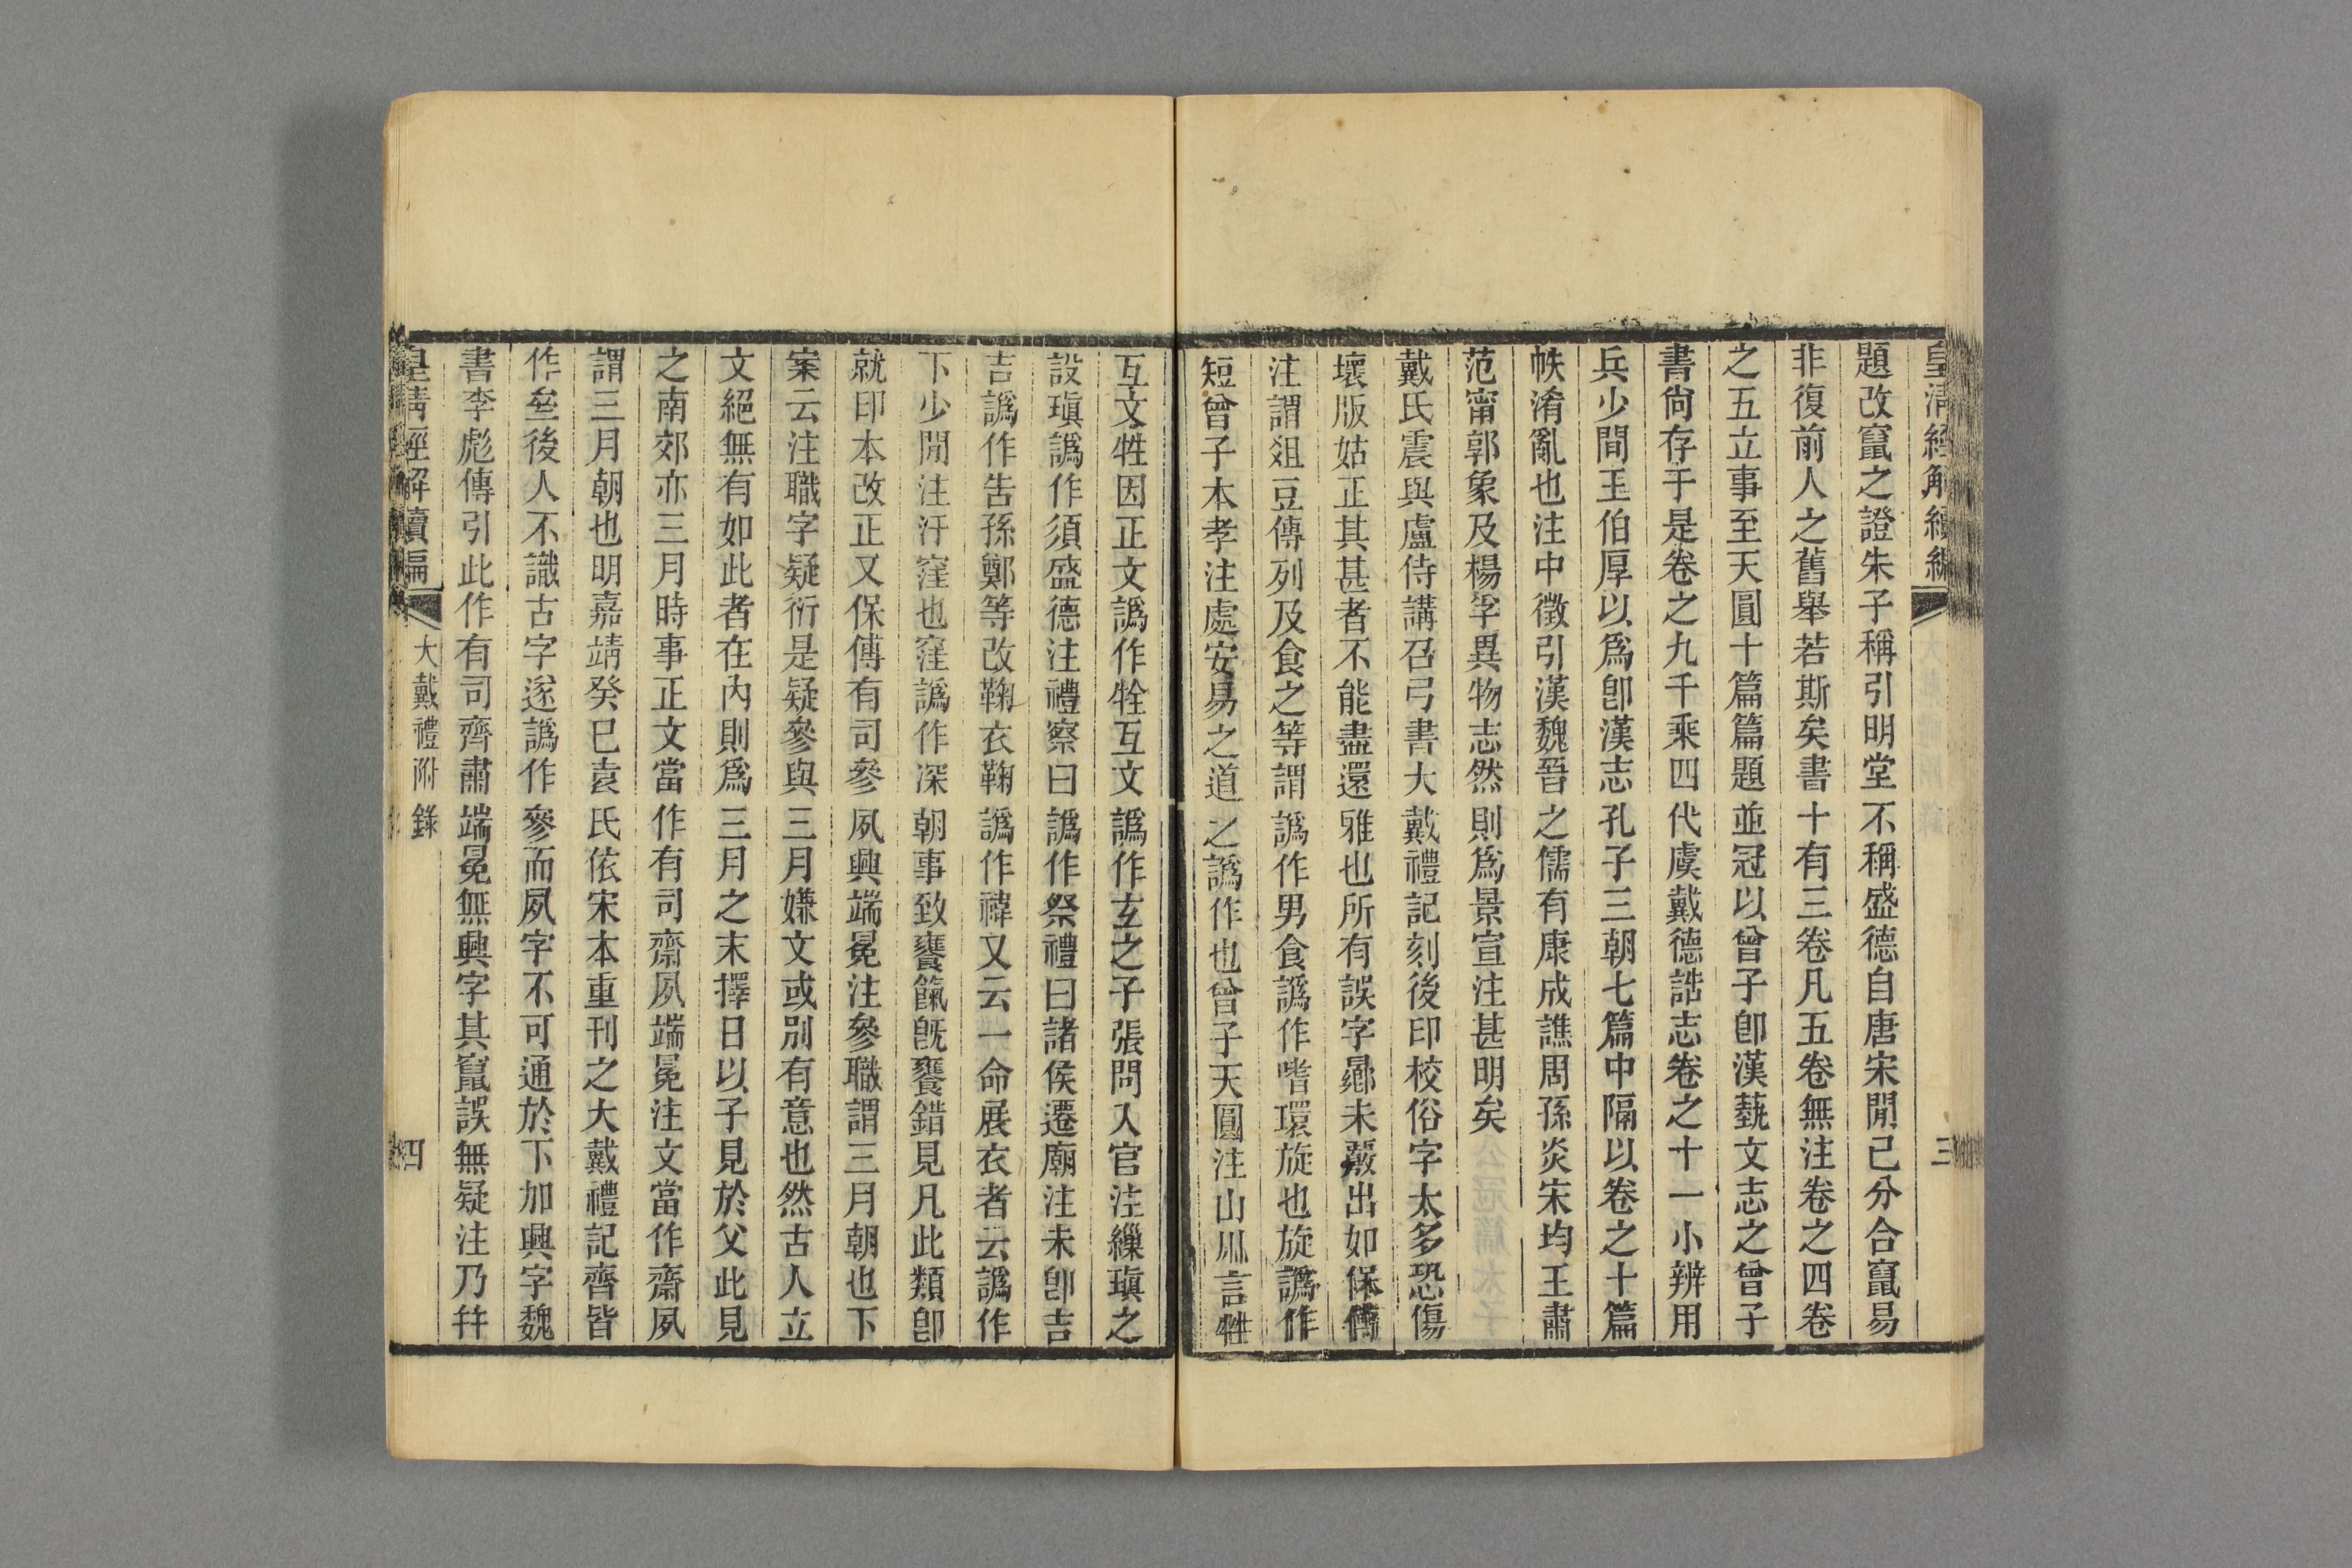 皇清經解續編
三
題改竄之證朱子稱引明堂不稱盛德自唐宋閒已分合竄易
非復前人之舊舉若斯矣書十有三卷凡五卷無注卷之四卷
之五立事至天圓十篇篇題並冠以曾子卽漢藝文志之曾子
書尙存于是卷之九千乘四代虞戴德誥志卷之十一小辨用
兵少間王伯厚以爲卽漢志孔子三朝七篇中隔以卷之十篇
帙淆亂也注中徵引漢魏晉之儒有康成譙周孫炎宋均王肅
范甯郭象及楊孚異物志然則爲景宣注甚明矣
戴氏震與盧侍講召弓書大戴禮記刻後印校俗字太多恐傷
壞版姑正其甚者不能盡還雅也所有誤字曏未覈出如保傅
注謂俎豆傳列及食之等謂譌作男食譌作嗜環旋也旋譌作
短曾子本孝注處安易之道之譌作也曾子天圓注山川言牲
互文牲因正文譌作牷互文譌作玄之子張問入官注纁瑱之
設瑱譌作須盛德注禮察曰譌作祭禮曰諸侯遷廟注未卽吉
吉譌作告孫鄭等改鞠衣鞠譌作褘又云一命展衣者云譌作
下少閒注汙窪也窪譌作深朝事致饔餼旣饔錯見凡此類卽
就印本改正又保傅有司參夙興端冕注參職謂三月朝也下
案云注職字疑衍是疑參與三月嫌文或別有意也然古人立
文絕無有如此者在內則爲三月之末擇日以子見於父此見
之南郊亦三月時事正文當作有司齋夙端冕注文當作齋夙
謂三月朝也明嘉靖癸巳袁氏依宋本重刊之大戴禮記齊皆
作亝後人不識古字遂譌作參而夙字不可通於下加興字魏
書李彪傳引此作有司齊肅端冕無興字其竄誤無疑注乃幷
皇清經解續編
大戴禮附錄
四